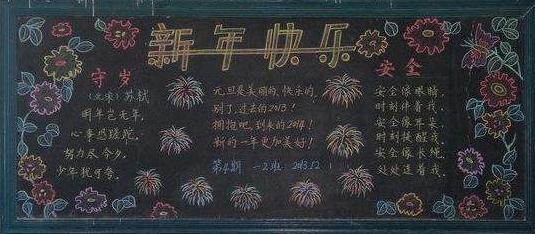 新年快乐
守岁
(北宋) 苏轼
明年岂无年,
心事恐蹉跎。
努力尽今夕,
少年犹可夸。
元旦是美丽的、快乐的,
别了,过去的2013!
拥抱吧,到来的2014!
新的一年更加美好!
第4期 一2班 2013.12
安全
安全像眼睛,
时刻伴着我,
安全像耳朵,
时刻提醒我,
安全像长绳,
处处连着我。